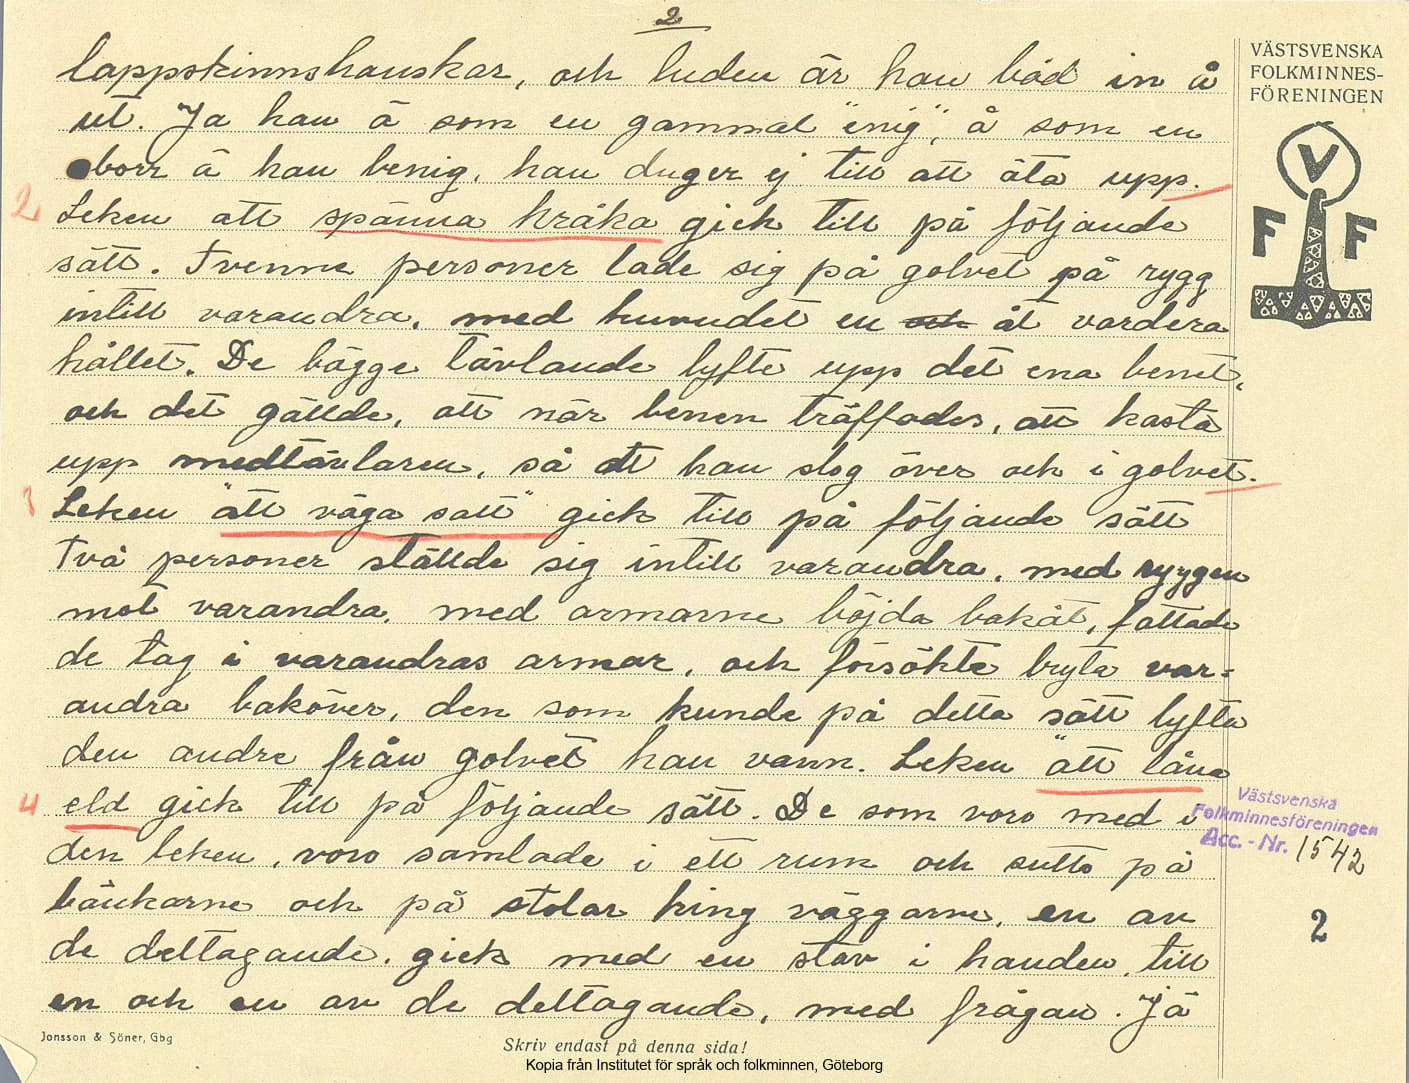 2
lappskinnshanskar, och luden är han båd in å
ut. Ja han ä som en gammal "enig", å som en
borr ä han benig, han duger ej till att äta upp.
2 Leken att spänna kråka gick till på följande
sätt. Tvenne personer lade sig på golvet på rygg
intill varandra, med huvudet en åt vardera
hållet. De bägge tävlande lyfte upp det ena benet,
och det gällde, att när benen träffades, att kasta
upp medtävlaren, så att han slog över och i golvet.
3 Leken "att väga salt" gick till på följande sätt
Två personer ställde sig intill varandra, med ryggen
mot varandra, med armarne böjda bakåt, fattade
de tag i varandras armar, och försökte bryta var-
andra baköver, den som kunde på detta sätt lyfta
den andre från golvet han vann. Leken "att låna
4 eld gick till på följande sätt. De som voro med i
den leken, voro samlade i ett rum och sutto på
bänkarne och på stolar kring väggarne, en av
de deltagande, gick med en stav i handen, till
en och en av de deltagande, med frågan. Jä
VÄSTSVENSKA
FOLKMINNES-
FÖRENINGEN
V
F F
Västsvenska
Folkminnesföreningen
Acc. - Nr. 1542
2
Jonsson & Söner, Gbg
Skriv endast på denna sida!
Kopia från Institutet för språk och folkminnen, Göteborg